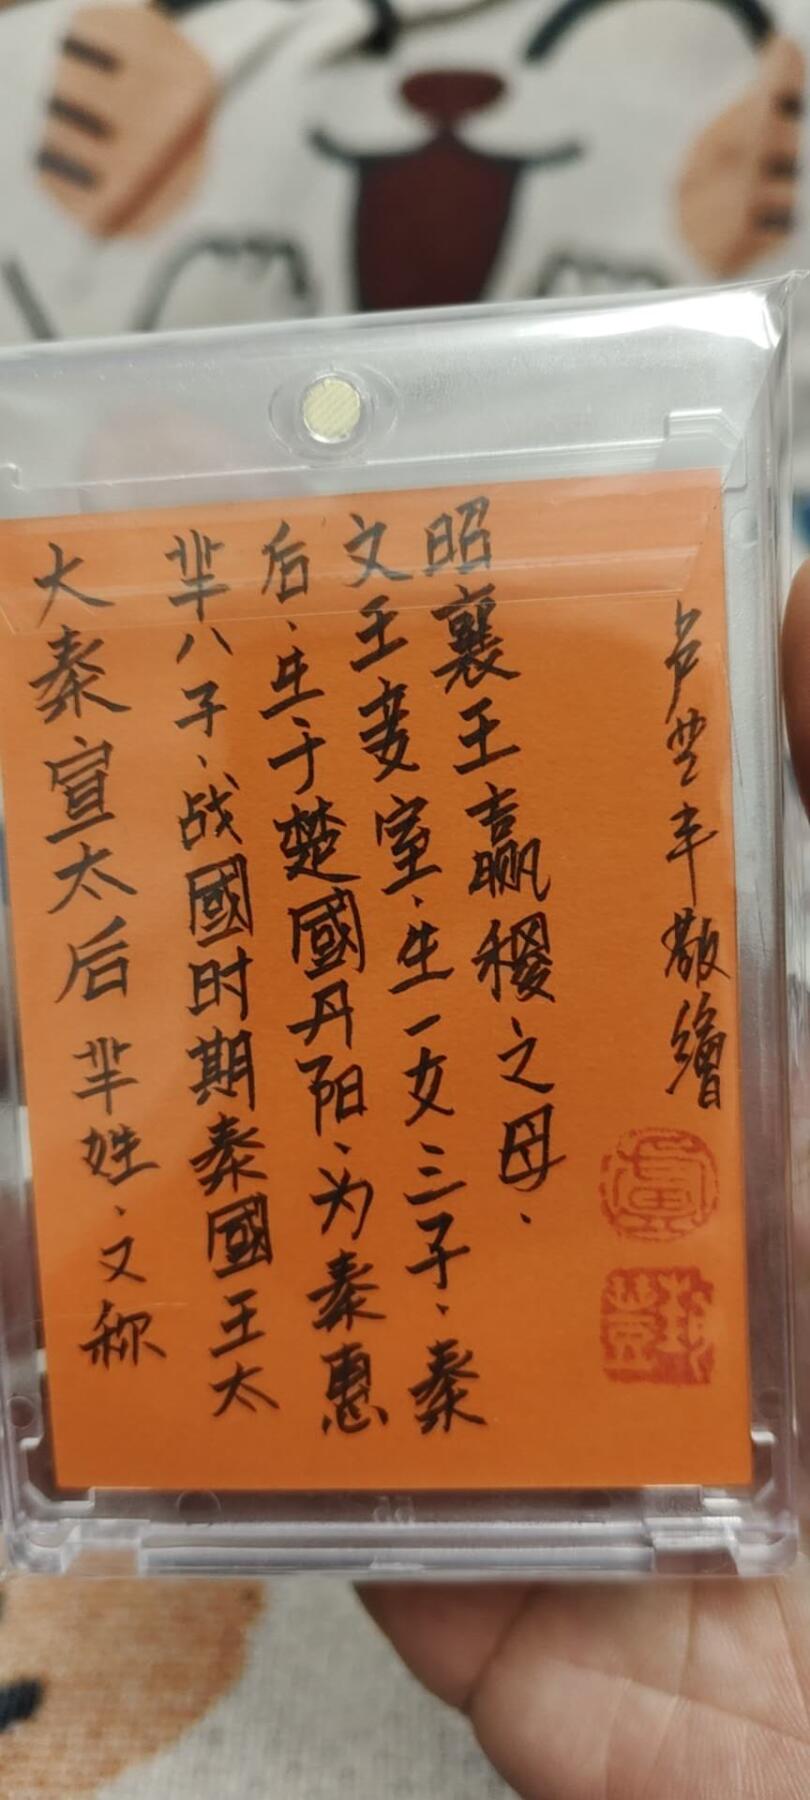 大秦宣太后 芈姓、又称
芈八子、战國时期秦國王太
后、生于楚國丹阳、为秦惠
文王妾室、生一女三子、秦
昭襄王嬴稷、之母、
敬繪